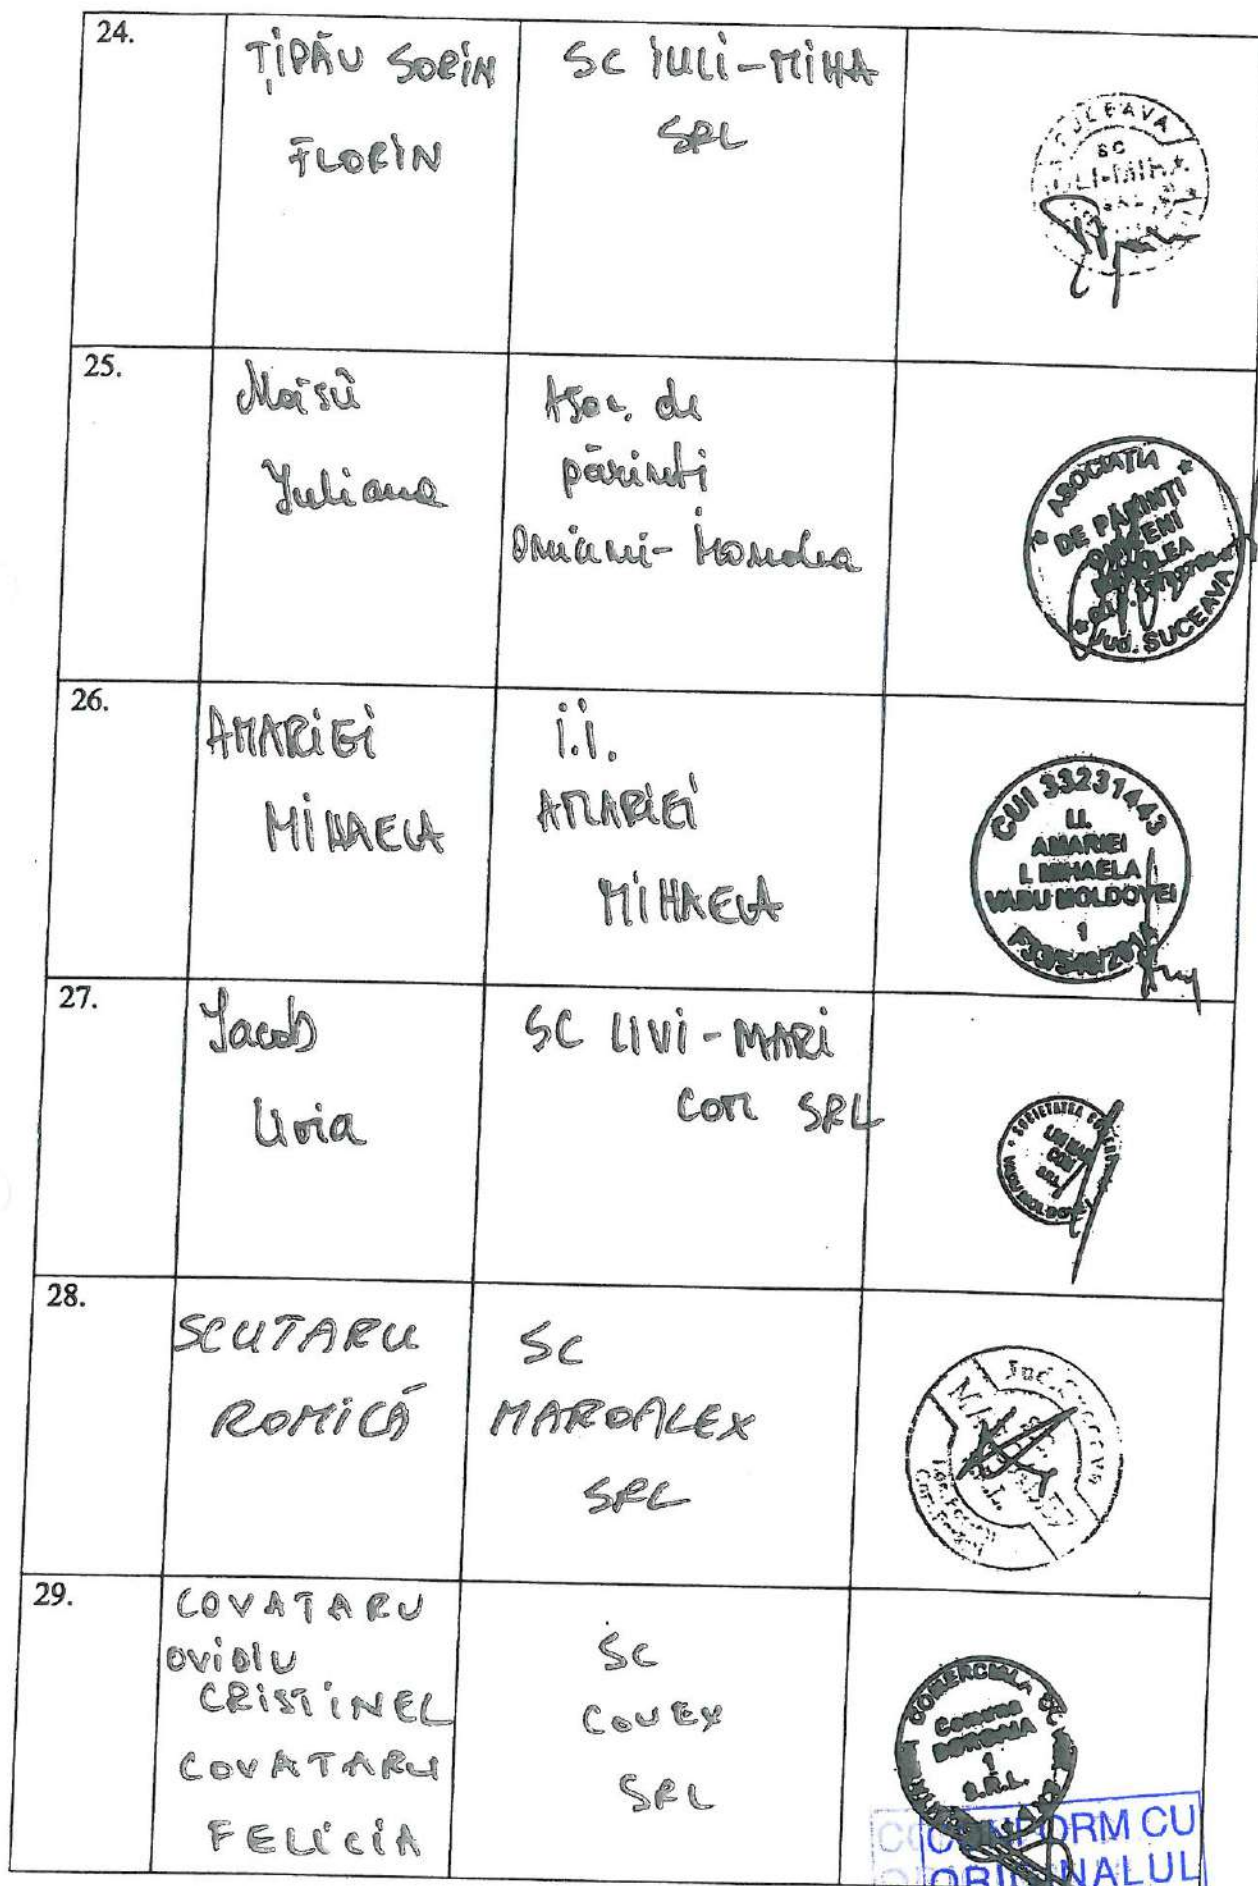 24.
ȚIPĂU SORIN
FLORIN
SC IULI-MIHA
SRL
SC
25.
Moisii
Iuliana
Asoc. de
părinti
Omiceni-
ASOCIAȚIA
DE PĂRINȚI
Jud. SUCEAVA
26.
AMARIEI
MIHAELA
i.i.
AMARIEI
MIHAELA
CUI 33231443
I.I.
AMARIEI
I. MIHAELA
VADU MOLDOVEI
1
27.
Iacob
Livia
SC LIVI-MARI
COM SRL
SOCIETATEA
COM
S.R.L.
VADU MOLDOVEI
28.
SCUTARU
ROMICĂ
SC
MAROALEX
SRL
29.
COVATARU
OVIDIU
CRISTINEL
COVATARU
FELICIA
SC
COVEX
SRL
COMERCIALA
1
S.R.L.
CONFORM CU
ORIGINALUL